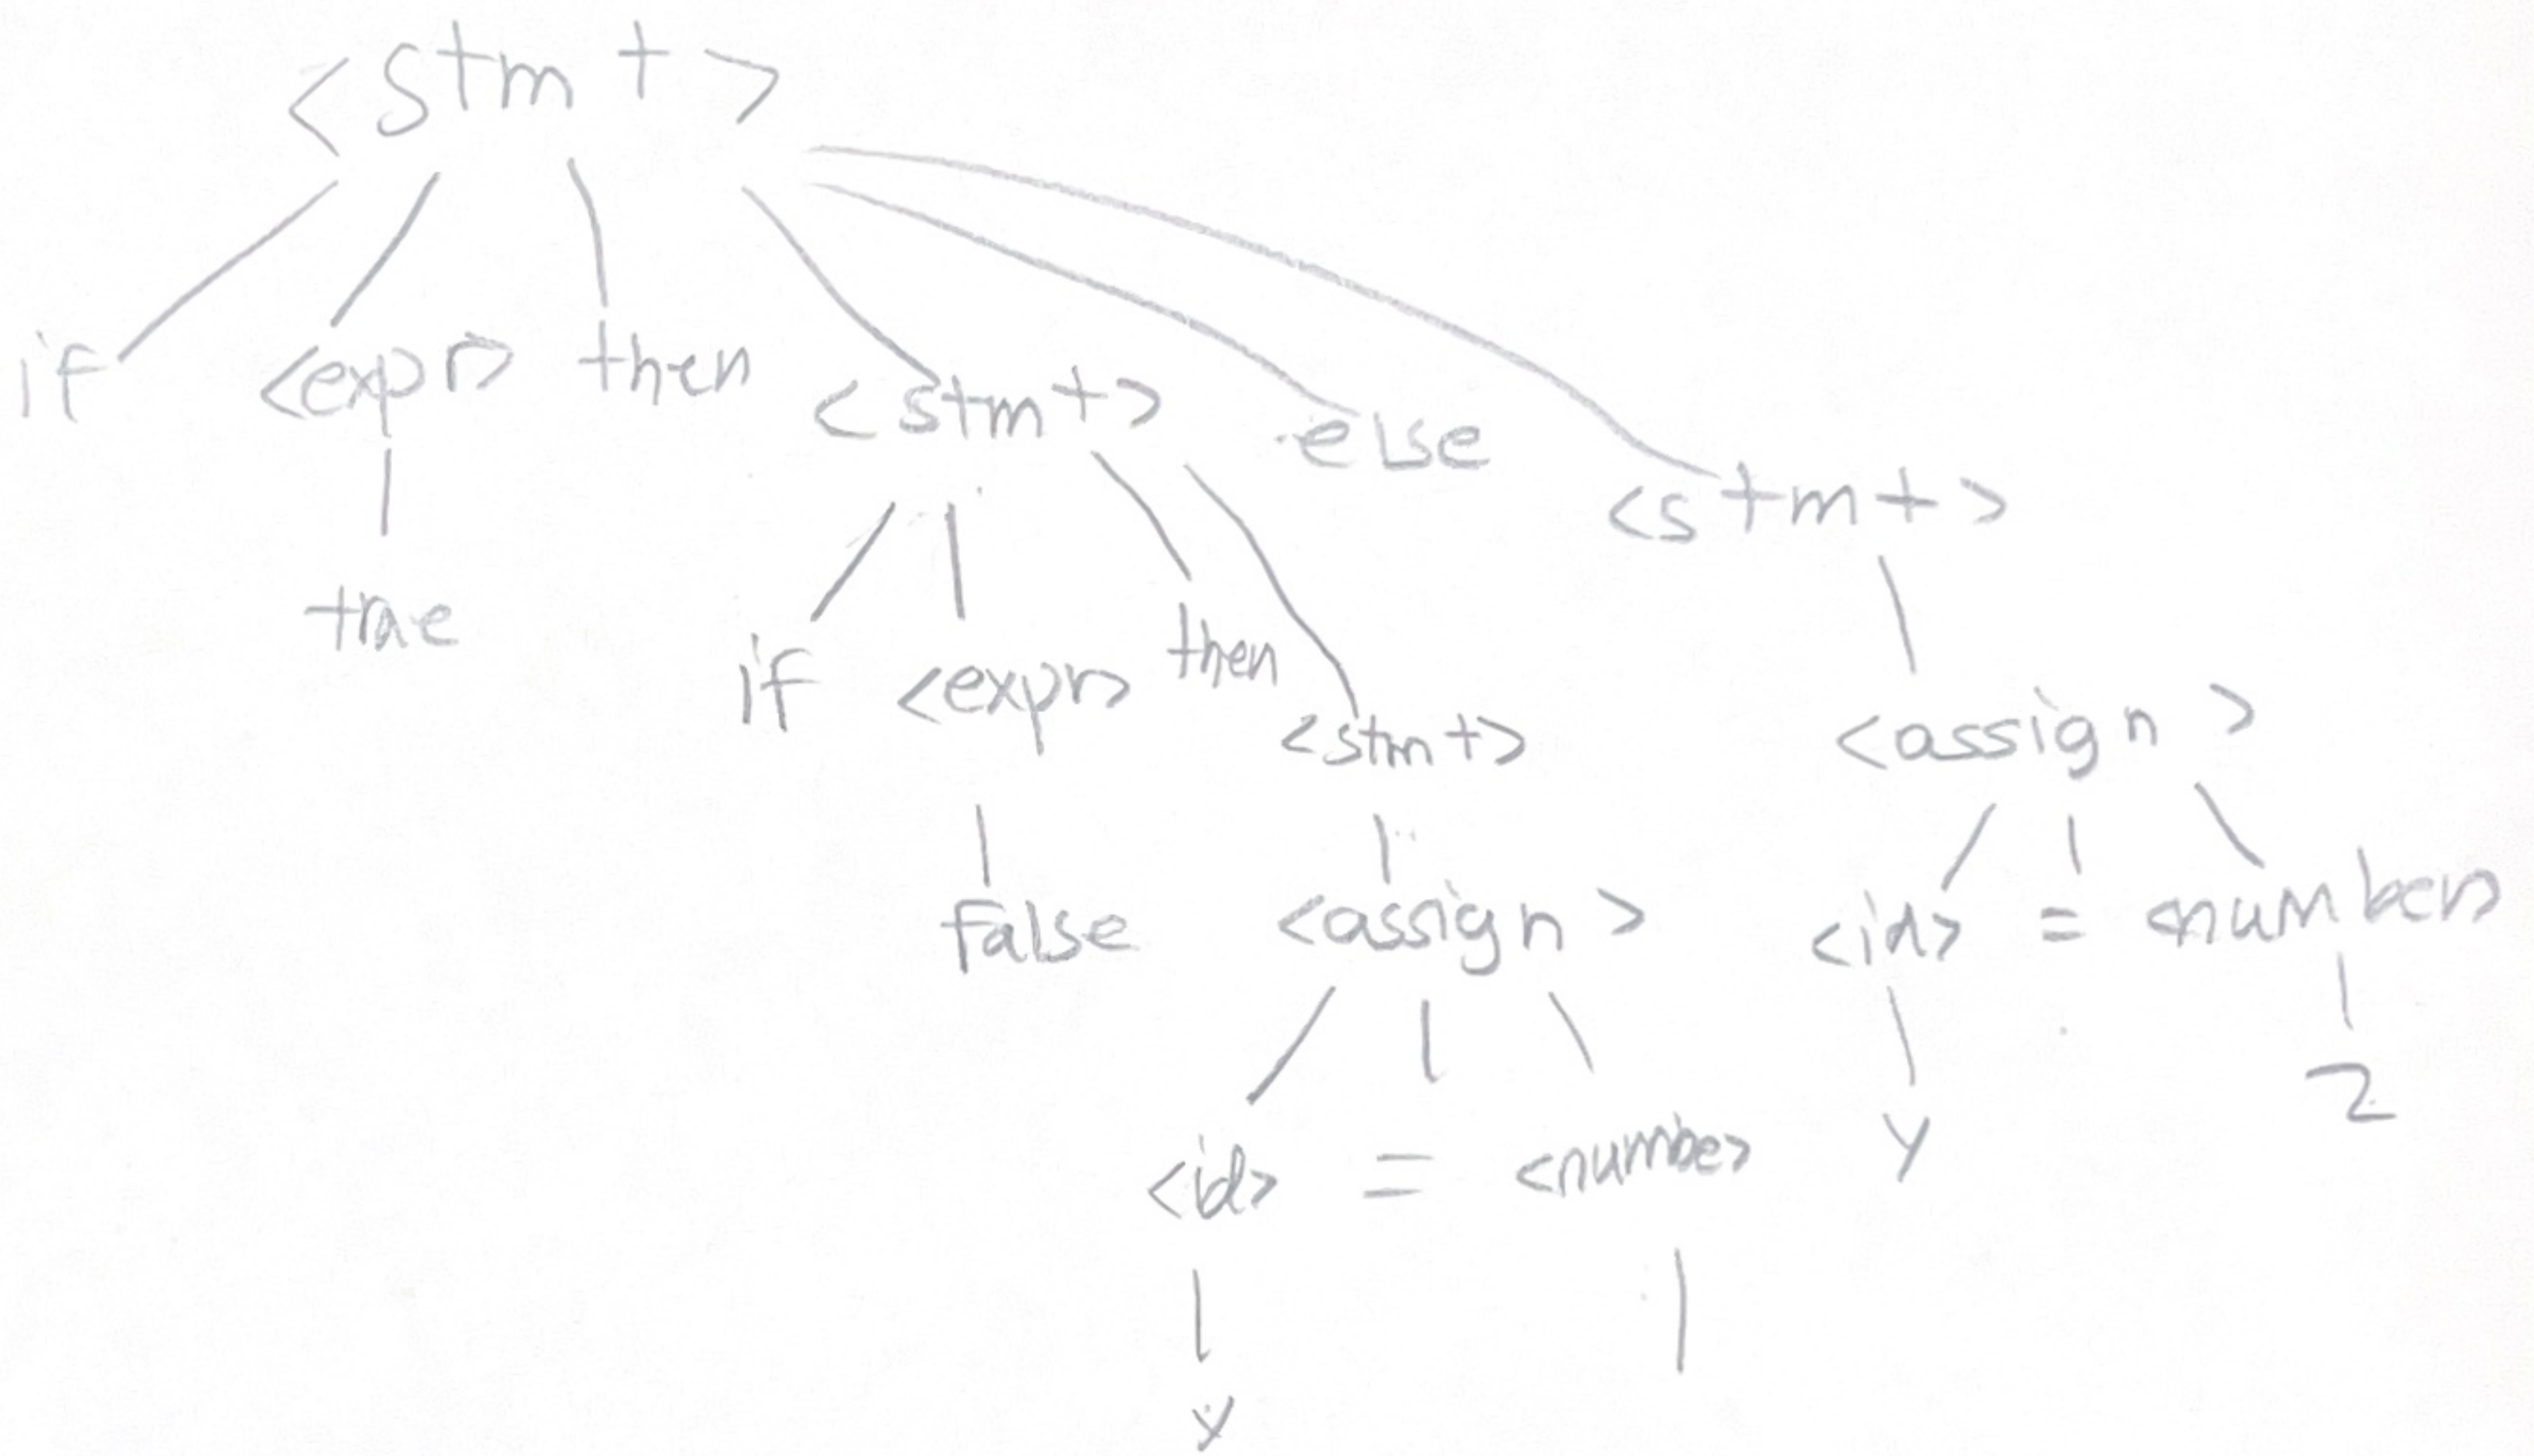 <stmt>
if <expr> then <stmt> else <stmt>
true if <expr> then <stmt> <assign>
false <assign> <id> = <number>
<id> = <numbe> y 2
y